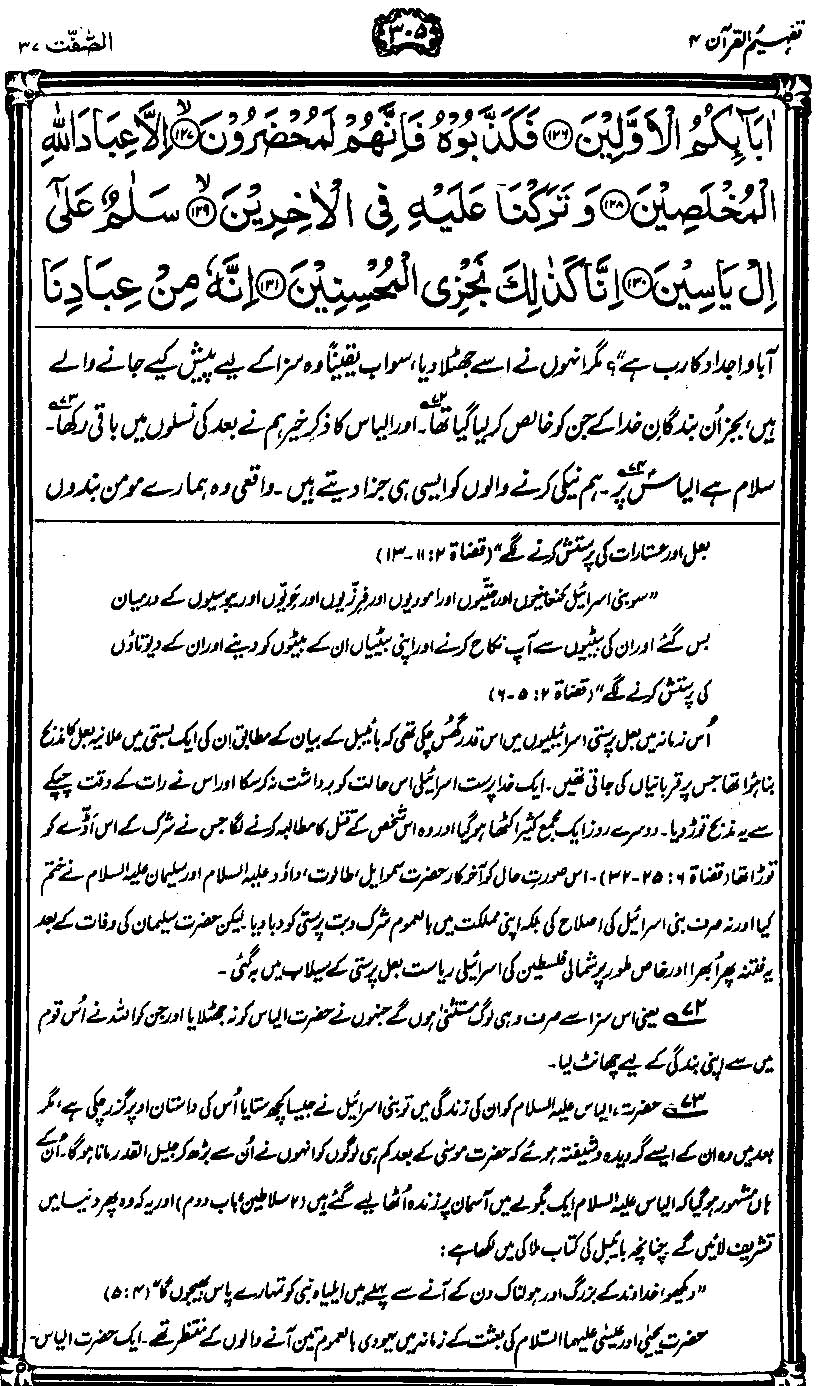 تفہیم القرآن ۴
۳۰۵
الصّٰفّٰت ۳۷
اٰبَآىِٕكُمُ الْاَوَّلِيْنَ ﴿۱۲۶﴾ فَكَذَّبُوْهُ فَاِنَّهُمْ لَمُحْضَرُوْنَ ﴿۱۲۷﴾ۙ اِلَّا عِبَادَ اللّٰهِ
الْمُخْلَصِيْنَ ﴿۱۲۸﴾ وَ تَرَكْنَا عَلَيْهِ فِى الْاٰخِرِيْنَ ﴿۱۲۹﴾ۙ سَلٰمٌ عَلٰٓى
اِلْ يَاسِيْنَ ﴿۱۳۰﴾ اِنَّا كَذٰلِكَ نَجْزِى الْمُحْسِنِيْنَ ﴿۱۳۱﴾ اِنَّهٗ مِنْ عِبَادِنَا
آباو اجداد کا رب ہے“؟ مگر انہوں نے اسے جھٹلا دیا، سواب یقیناً وہ سزا کے لیے پیش کیے جانے والے
ہیں، بجز اُن بندگانِ خدا کے جن کو خالص کر لیا گیا تھا۷۲۔ اور الیاس کا ذکرِ خیر ہم نے بعد کی نسلوں میں باقی رکھا۷۳۔
سلام ہے الیاس۷۴ پر۔ ہم نیکی کرنے والوں کو ایسی ہی جزا دیتے ہیں۔ واقعی وہ ہمارے مومن بندوں
بعل اور عستارات کی پرستش کرنے لگے“ (قضاۃ ۲: ۱۱-۱۳)
”سو بنی اسرائیل کنعانیوں اور حتّیوں اور اموریوں اور فرزّیوں اور حَوّیوں اور یبوسیوں کے درمیان
بس گئے اور ان کی بیٹیوں سے آپ نکاح کرنے اور اپنی بیٹیاں ان کے بیٹوں کو دینے اور ان کے دیوتاؤں
کی پرستش کرنے لگے“ (قضاۃ ۲: ۵-۶)
اُس زمانہ میں بعل پرستی اسرائیلیوں میں اس قدر گھُس چکی تھی کہ بائیبل کے بیان کے مطابق ان کی ایک بستی میں علانیہ بعل کا مذبح
بنا ہوا تھا جس پر قربانیاں کی جاتی تھیں۔ ایک خدا پرست اسرائیلی اس حالت کو برداشت نہ کر سکا اور اس نے رات کے وقت چپکے
سے یہ مذبح توڑ دیا۔ دوسرے روز ایک مجمع کثیر اکٹھا ہو گیا اور وہ اس شخص کے قتل کا مطالبہ کرنے لگا جس نے شرک کے اس اڈّے کو
توڑا تھا (قضاۃ ۶: ۲۵-۳۲)۔ اس صورتِ حال کو آخر کار حضرت سموایل، طالوت، داؤد علیہ السلام اور سلیمان علیہ السلام نے ختم
کیا اور نہ صرف بنی اسرائیل کی اصلاح کی بلکہ اپنی مملکت میں بالعموم شرک و بت پرستی کو دبا دیا۔ لیکن حضرت سلیمان کی وفات کے بعد
یہ فتنہ پھر اُبھرا اور خاص طور پر شمالی فلسطین کی اسرائیلی ریاست بعل پرستی کے سیلاب میں بہ گئی۔
۷۲ یعنی اس سزا سے صرف وہی لوگ مستثنیٰ ہوں گے جنہوں نے حضرت الیاس کو نہ جھٹلایا اور جن کو اللہ نے اُس قوم
میں سے اپنی بندگی کے لیے چھانٹ لیا۔
۷۳ حضرت، الیاس علیہ السلام کو ان کی زندگی میں تو بنی اسرائیل نے جیسا کچھ ستایا اُس کی داستان اوپر گزر چکی ہے، مگر
بعد میں وہ ان کے ایسے گرویدہ و شیفتہ ہوئے کہ حضرت موسیٰ کے بعد کم ہی لوگوں کو انہوں نے اُن سے بڑھ کر جلیل القدر مانا ہوگا۔ اُن کے
ہاں مشہور ہو گیا کہ الیاس علیہ السلام ایک بگولے میں آسمان پر زندہ اُٹھا لیے گئے ہیں (۲ سلاطین، باب دوم) اور یہ کہ وہ پھر دنیا میں
تشریف لائیں گے۔ چنانچہ بائیبل کی کتاب ملاکی میں لکھا ہے:
”دیکھو خداوند کے بزرگ اور ہولناک دن کے آنے سے پہلے میں ایلیاہ نبی کو تمہارے پاس بھیجوں گا“ (۴: ۵)
حضرت یحییٰ اور عیسیٰ علیہما السّلام کی بعثت کے زمانہ میں یہودی بالعموم تین آنے والوں کے منتظر تھے۔ ایک حضرت الیاس۔